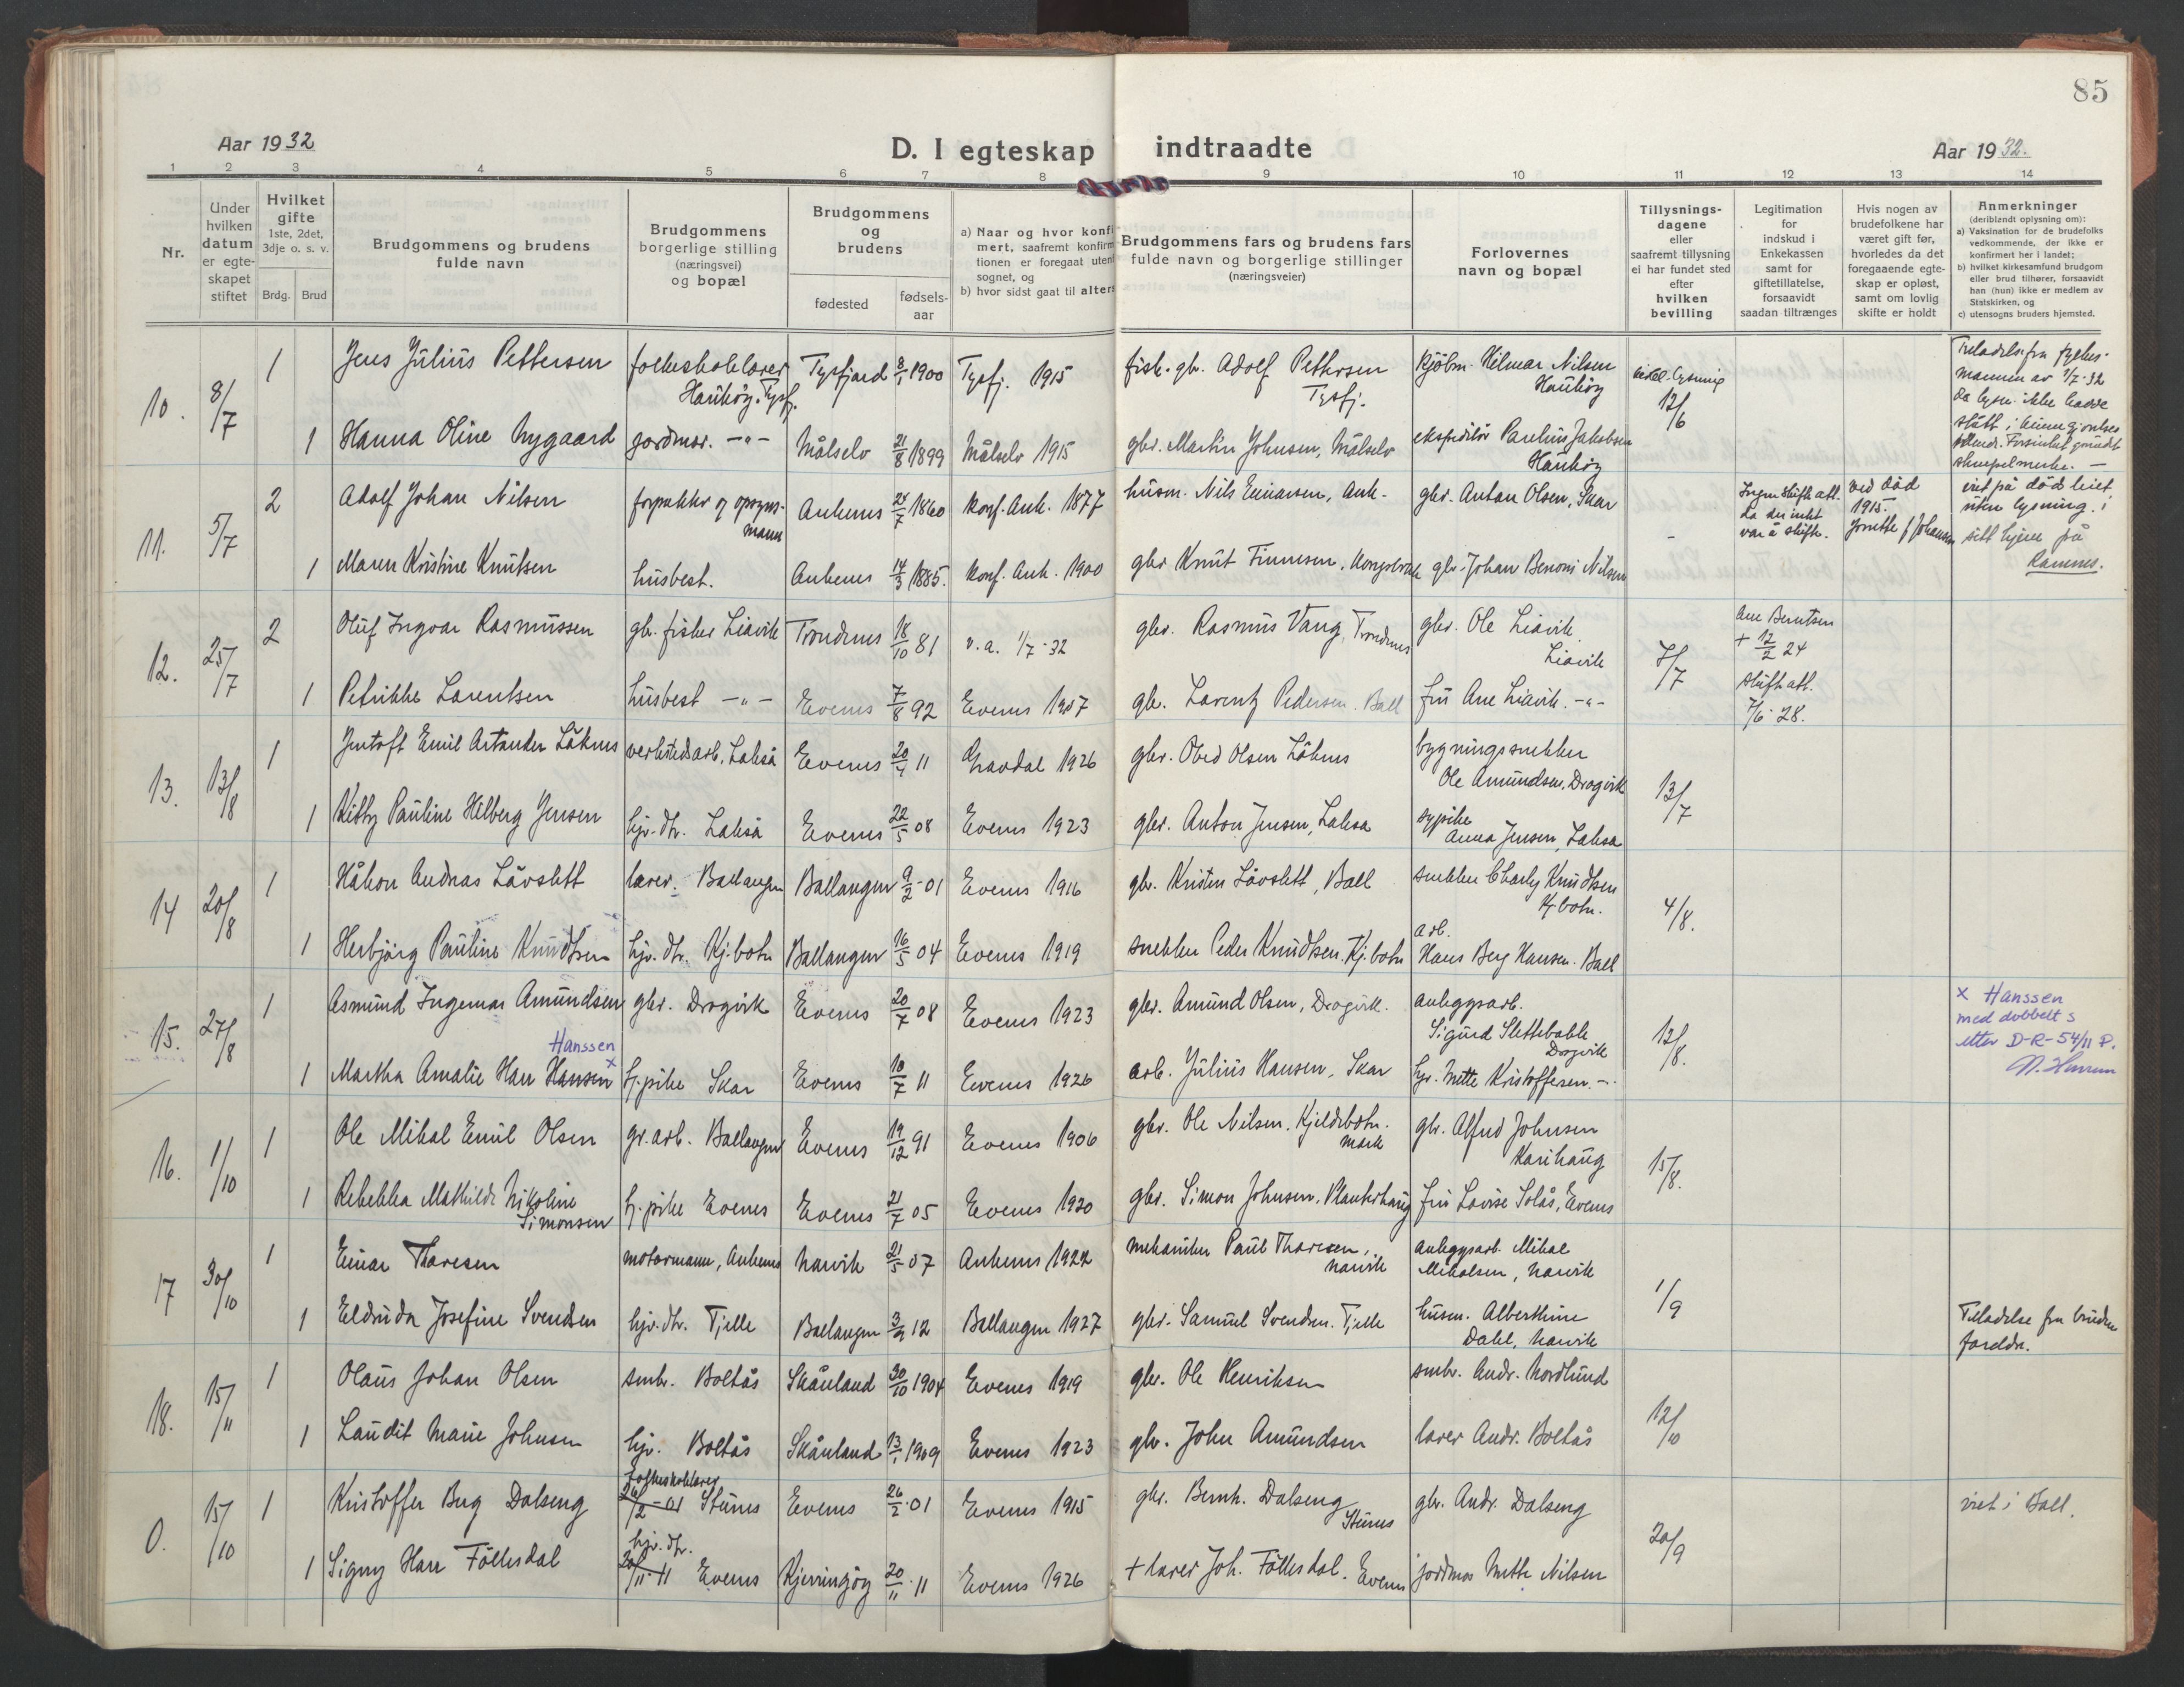 85
Aar 1932
D. I egteskap indtraadte
Aar 1932.
1 2 3 4 5 6 7 8 9 10 11 12 13 14
Nr.
Under
hvilken
datum
er egte-
skapet
stiftet
Hvilket
gifte
1ste, 2det,
3dje o. s. v.
Brdg. Brud
Brudgommens og brudens
fulde navn
Brudgommens
borgerlige stilling
(næringsvei)
og bopæl
Brudgommens
og
brudens
fødested
fødsels-
aar
a) Naar og hvor konfi
mert, saafremt konfirm
tionen er foregaat uten
sognet, og
b) hvor sidst gaat til alters
Brudgommens fars og brudens fars
fulde navn og borgerlige stillinger
(næringsveier)
Forlovernes
navn og bopæl
Tillysnings-
dagene
eller
saafremt tillysning
ei har fundet sted
efter
hvilken
bevilling
Legitimation
for
indskud i
Enkekassen
samt for
giftetillatelse,
forsaavidt
saadan tiltrænges
Hvis nogen av
brudefolkene har
været gift før,
hvorledes da det
foregaaende egte-
skap er opløst,
samt om lovlig
skifte er holdt
Anmerkninger
(deriblandt oplysning om):
a) Vaksination for de brudefolks
vedkommende, der ikke er
konfirmert her i landet;
b) hvilket kirkesamfund brudgom
eller brud tilhører, forsaavidt
han (hun) ikke er medlem av
Statskirken, og
c) utensogns bruders hjemsted.
10. 8/7 1 Jens Julius Pettersen folkeskolelærer Haukøy. Tysf. Tysfjord 8/1 1900 Tysfj. 1915 fisk. gb. Adolf Pettersen Tysfj. kjøbm. Hilmar Nilsen Haukøy 12/6
Tilladelse fra fylkes-
mannen av 1/7-32
da lysn. ikke hadde
1 Hanna Oline Nygaard jordmor. -"- Målselv 21/8 1899 Målselv 1915 gbr. Martin Johnsen, Målselv ekspeditør Paulius Jakobsen Haukøy
stempelmerke. -
11. 5/7 2 Adolf Johan Nilsen forpakter og opsyns-mann Ankenes 24/7 1860 konf. Ank. 1877 husm. Nils Einarsen, Ank. gbr. Anton Olsen, Skar -
Ingen skifteatt.
da der intet
var å skifte.
ved død
1915.
viet på dødsleiet
uten lysning. i
sitt hjem på
Ramnes.
1 Maren Kristine Knutsen husbest. Ankenes 14/3 1885. konf. Ank. 1900 gbr Knut Finnesen, gbr. Johan Benoni Nilsen
12. 25/7 2 Oluf Ingvar Rasmussen gbr. fisker Liavik Trondenes 18/10 81 v.a. 1/7-32 gbr. Rasmus Vang, Trondenes gbr. Ole Liavik. Liavik 7/7
Ane Berntsen
+ 12/2 24
skifteatt.
7/6-28.
1 Petrikke Lorentsen husbest -"- Evenes 7/8 92 Evenes 1907 gbr. Lorentz Pedersen. Ball fru Ane Liavik. -"-
13. 13/8 1 Jentoft Emil Artander Låknes verkstedsarb. Lakså Evenes 20/4 11 Gravdal 1926 gbr. Obed Olsen Låknes bygningssnekker Ole Amundsen, Dragvik 13/7
1 Kitty Pauline Hilberg Jensen hjv. dtr. Lakså Evenes 22/5 08 Evenes 1923 gbr. Anton Jensen, Laksa sypike Anna Jensen, Laksa
14 20/8 1 Håkon Andreas Lövslett lærer. Ballangen Ballangen 9/2-01 Evenes 1916 gbr. Kristen Lövslett, Ball snekker Charly Knudtsen Kj.botn. 4/8.
1 Herbjörg Pauline Knudtsen hjv. dtr. Kj.botn Ballangen 16/5 04 Evenes 1919 snekker Peder Knudtsen. Kj.botn arb. Hans Berg Hansen. Ball
15. 27/8 1 Asmund Ingemar Amundsen gbr. Dragvik Evenes 20/7 08 Evenes 1923 gbr. Amund Olsen, Dragvik. anleggsarb. Sigurd Slettebakk Dragvik 12/8.
x Hanssen
med dobbelt s
etter D-R-54/11 P.
Hanssen
x
1 Martha Amalie Hau Hansen hj.pike Skar Evenes 10/7 11 Evenes 1926 arb. Julius Hansen, Skar hjv. Mette Kristoffersen. -
16. 1/10 1 Ole Mikal Emil Olsen gr.arb. Ballangen Evenes 19/12 91 Evenes 1906 gbr. Ole Nilsen. Kjeldebotn. mark gbr. Alfred Johnsen Karihaug 15/8.
1 Rebekka Mathilde Nikoline Simonsen hj.pike Evenes Evenes 21/7 05 Evenes 1920 gbr. Simon Johnsen. Planterhaug fru Lovise Solås, Evenes
17 30/10 1 Einar Thoresen motormann, Ankenes Narvik 21/5 07 Ankenes 1922 mekaniker Paul Thoresen, Narvik anleggsarb. Mikal Mikalsen, Narvik 1/9
1 Eldrida Josefine Svendsen hjv. dtr. Tjelle Ballangen 3/9 12 Ballangen 1927 gbr. Samuel Svendsen. Tjelle husm. Alberthine Dahl, Narvik
Tilladelse fra brudens
foreldre.
18. 15/11 1 Olaus Johan Olsen smbr. Boltås Skånland 30/10 1904 Evenes 1919 gbr. Ole Henriksen smbr. Andr. Nordlund 12/10
1 Laudit Marie Johnsen hjv. Boltås Skånland 13/1 1909 Evenes 1923 gbr. John Amundsen lærer Andr. Boltås
0. 15/10 1 Kristoffer Berg Dalseng folkeskolelærer 26/2-01 Stunes Evenes 26/2-01 Evenes 1915 gbr. Bernh. Dalseng Stunes gbr. Andr. Dalseng 20/9 viet i Ball.
1 Signy HauFöllesdal hjv. dtr. 20/11-11 Evenes Kjerringøy 20/11-11 Evenes 1926 + lærer Joh. Föllesdal. Evenes jordmor Mette Nilsen